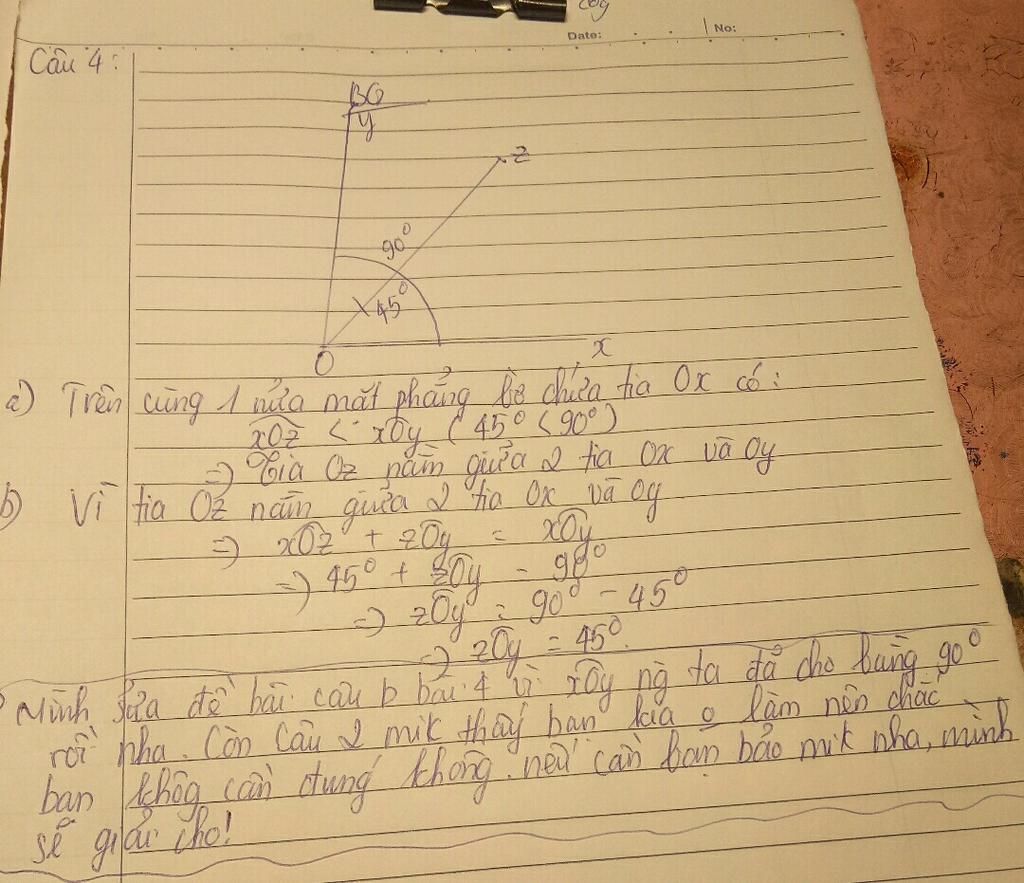 Date: No:
Câu 4:
y
z
90°
45°
O
x
a) Trên cùng 1 nửa mặt phẳng bờ chứa tia Ox có:
xOz < xOy (45° < 90°)
=) Tia Oz nằm giữa 2 tia Ox và Oy
b) Vì tia Oz nằm giữa 2 tia Ox và Oy
=) xOz + zOy = xOy
=) 45° + zOy = 90°
=) zOy = 90° - 45°
=) zOy = 45°.
Mình sửa đề bài câu b bài 4 vì xOy ng ta đã cho bằng 90°
rồi nha. Còn câu 2 mik thấy bạn kia làm nên chắc
bạn khôg cần đúng không. nếu cần bạn bảo mik nha, mình
sẽ giải cho!